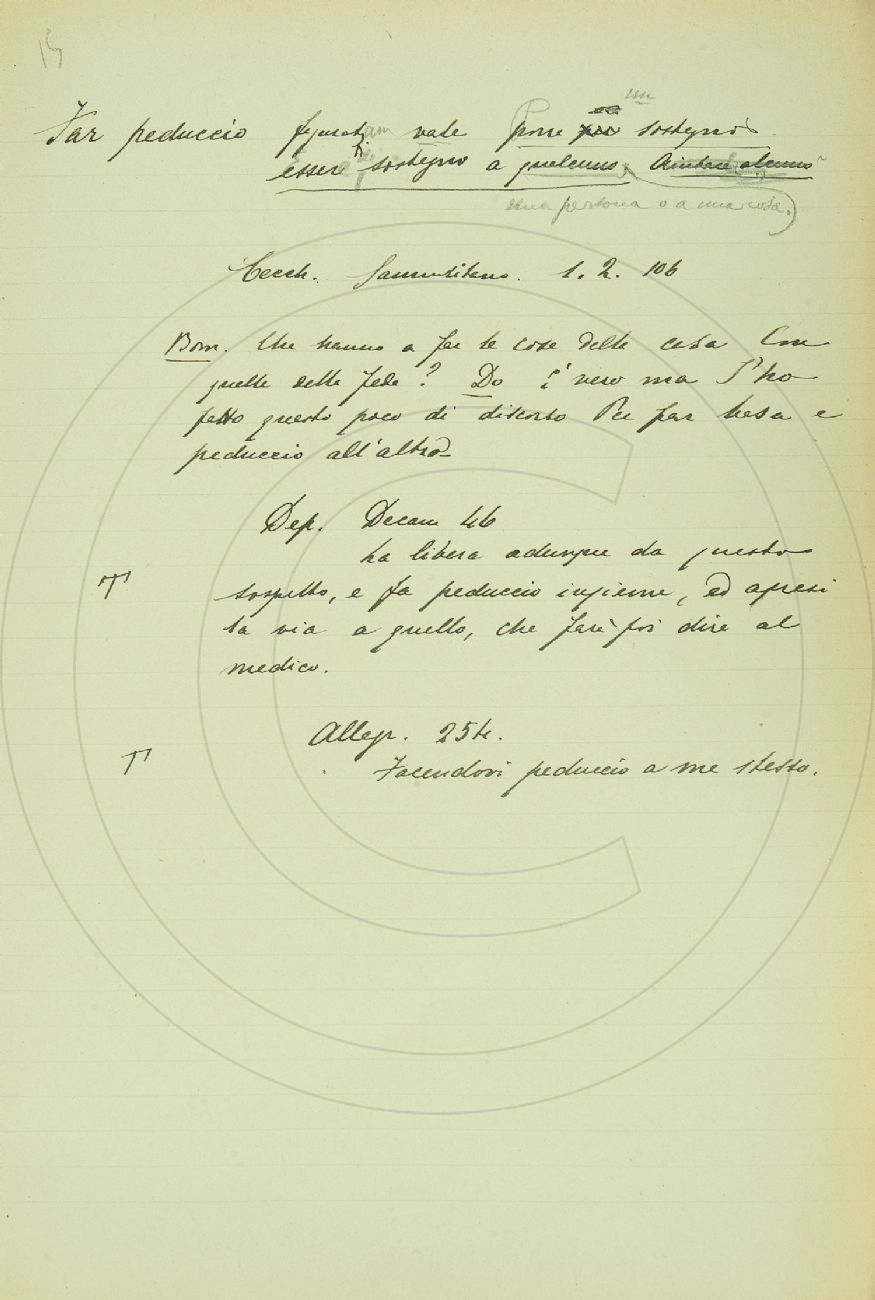 15
Far peduccio figurat.am vale porre sostegno
essere sostegno a qualcuno, Aiutare alcuno
una persona o a una cosa.)
Cecch. Samaritano. 1. 2. 106
Bom. Che hanno a far le cose della casa Con
quelle della fede? Do È vero ma l'ho
fatto questo poco di discorso Per far besa e
peduccio all'altro
Dep. Decam 46
La libera adunque da questo
sospetto, e fa peduccio insieme, ed apresi
la via a quello, che farà poi dire al
medico.
T
Allegr. 254.
T
Facendovi peduccio a me stesso.